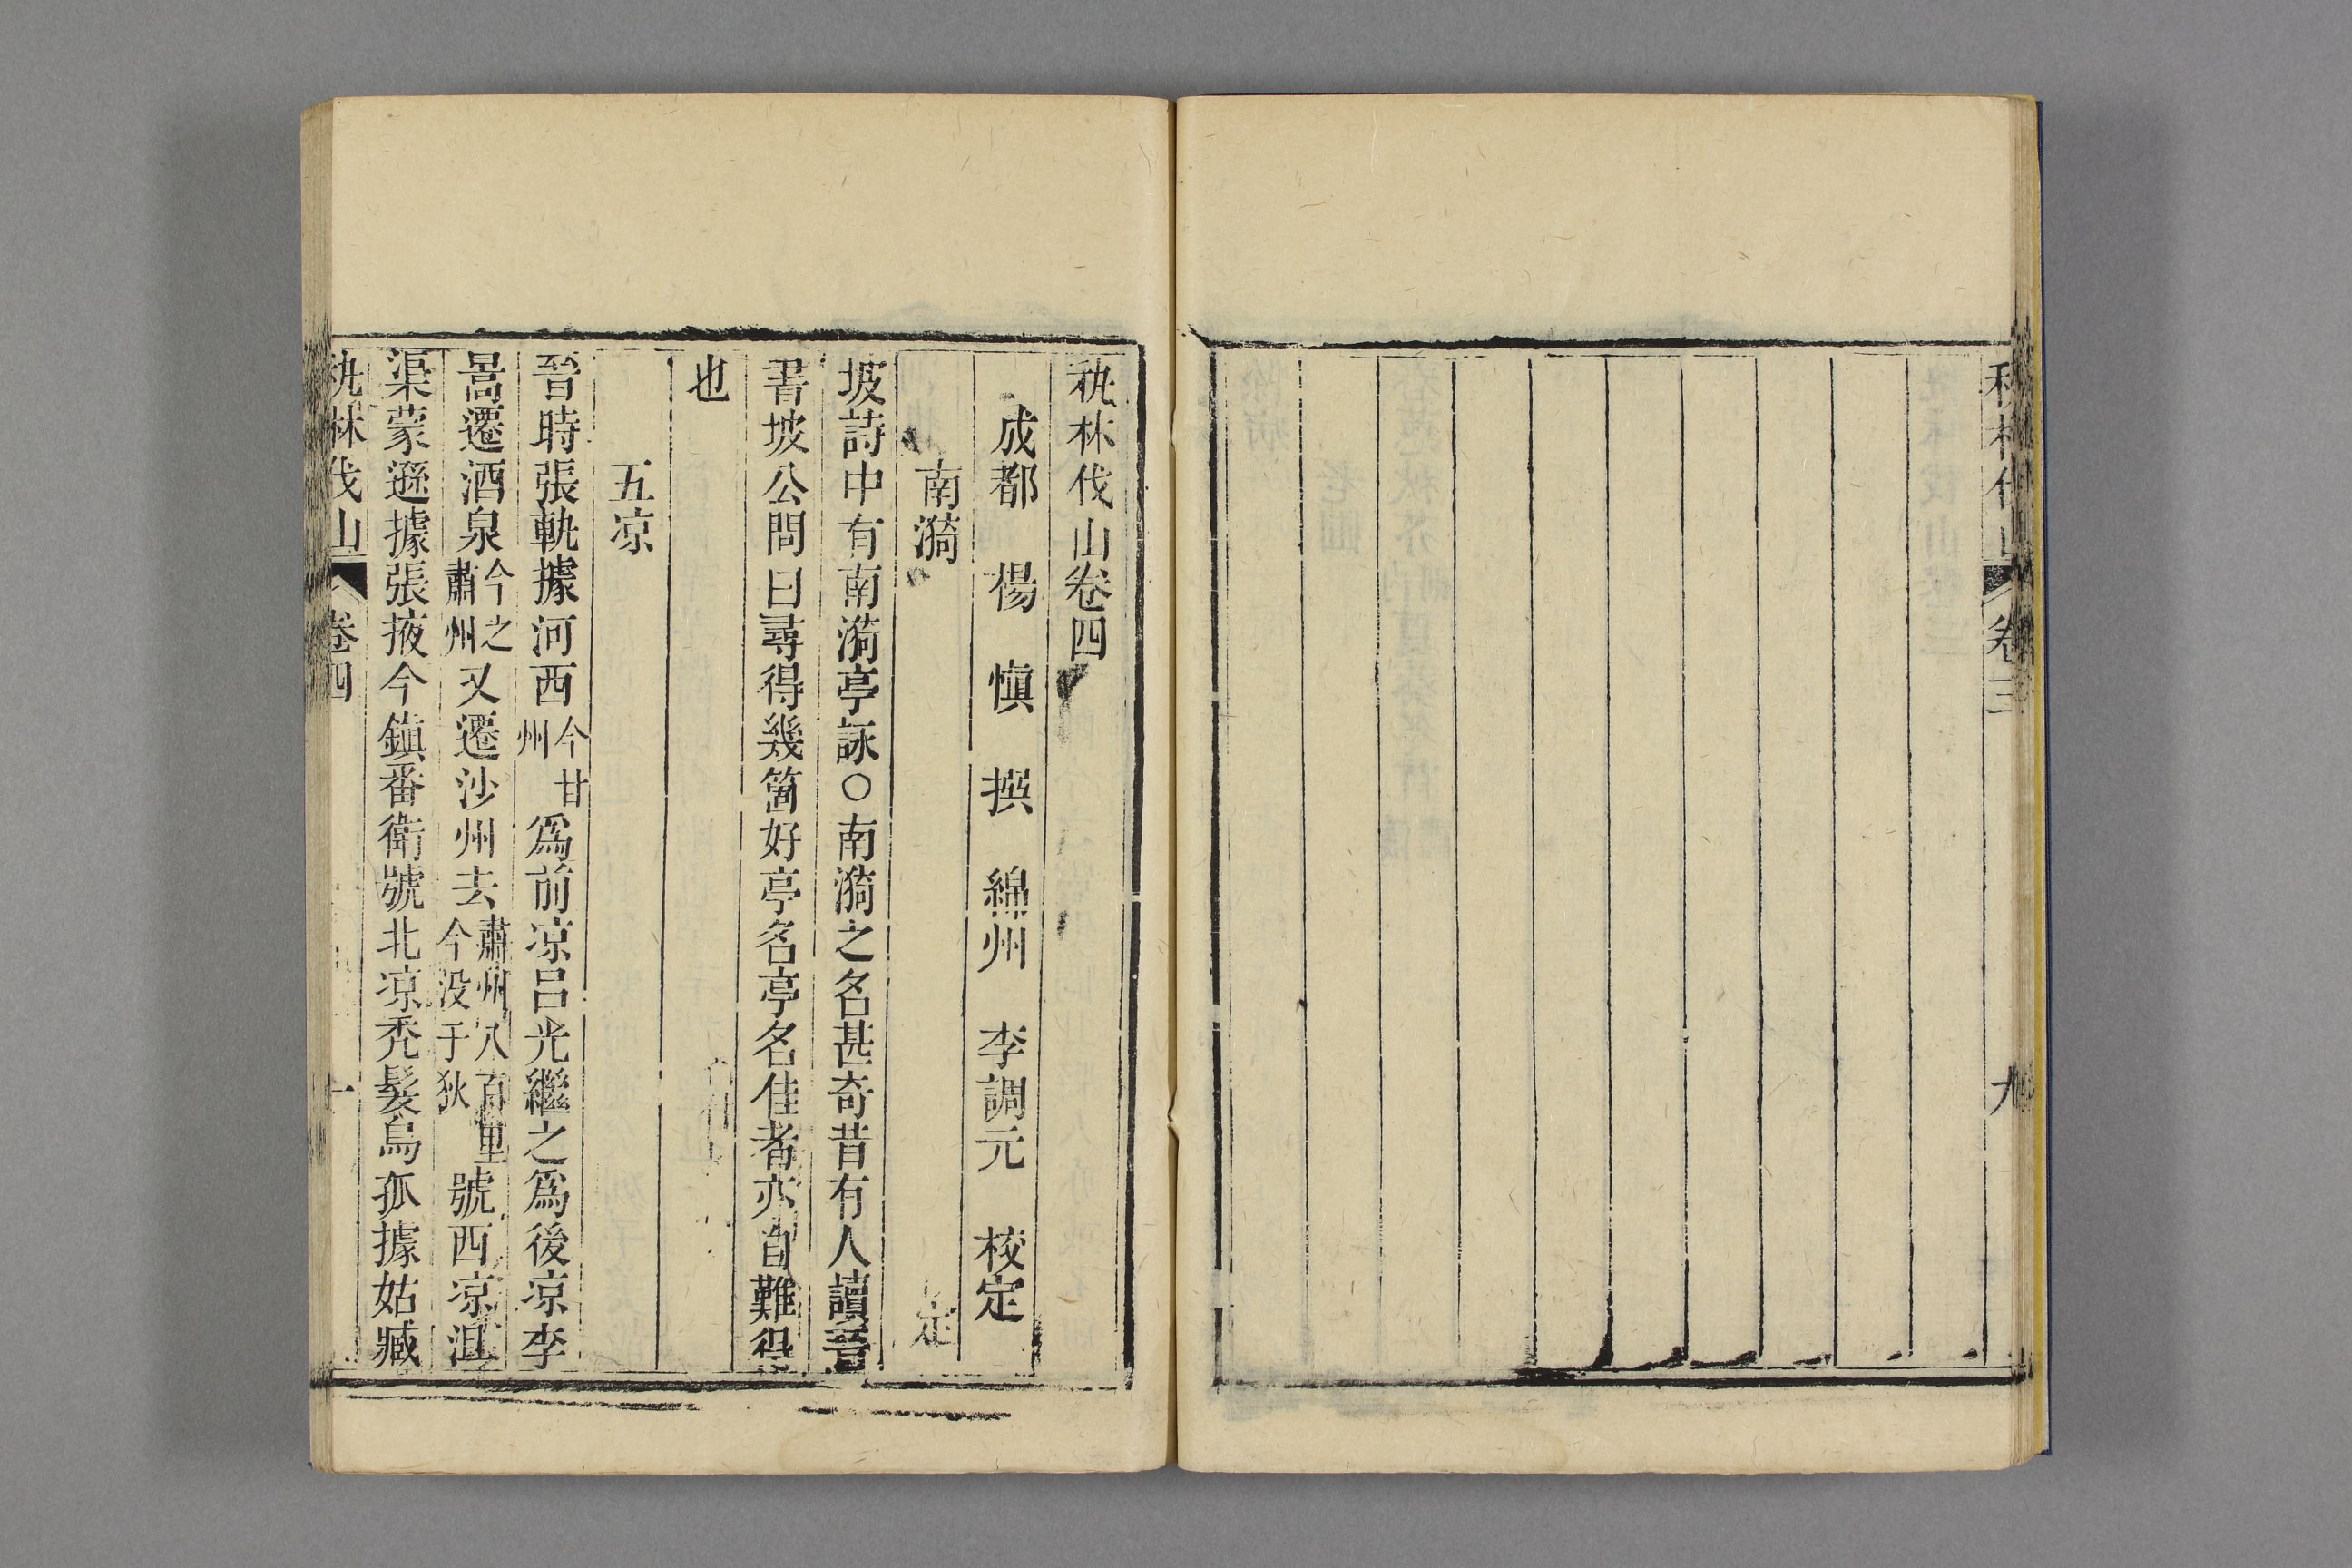 秇林伐山 卷三 九
秇林伐山卷四
成都 楊 慎 撰 綿州 李調元 校定
南漪
坡詩中有南漪亭詠○南漪之名甚奇昔有人讀書
書坡公問曰尋得幾箇好亭名亭名佳者亦自難得
也
五凉
晉時張軌據河西今甘州爲前凉呂光繼之爲後凉李
暠遷酒泉今之肅州又遷沙州去肅州八百里今没于狄號西凉沮
渠蒙遜據張掖今鎮番衛號北凉禿髮烏孤據姑臧
秇林伐山 卷四 一